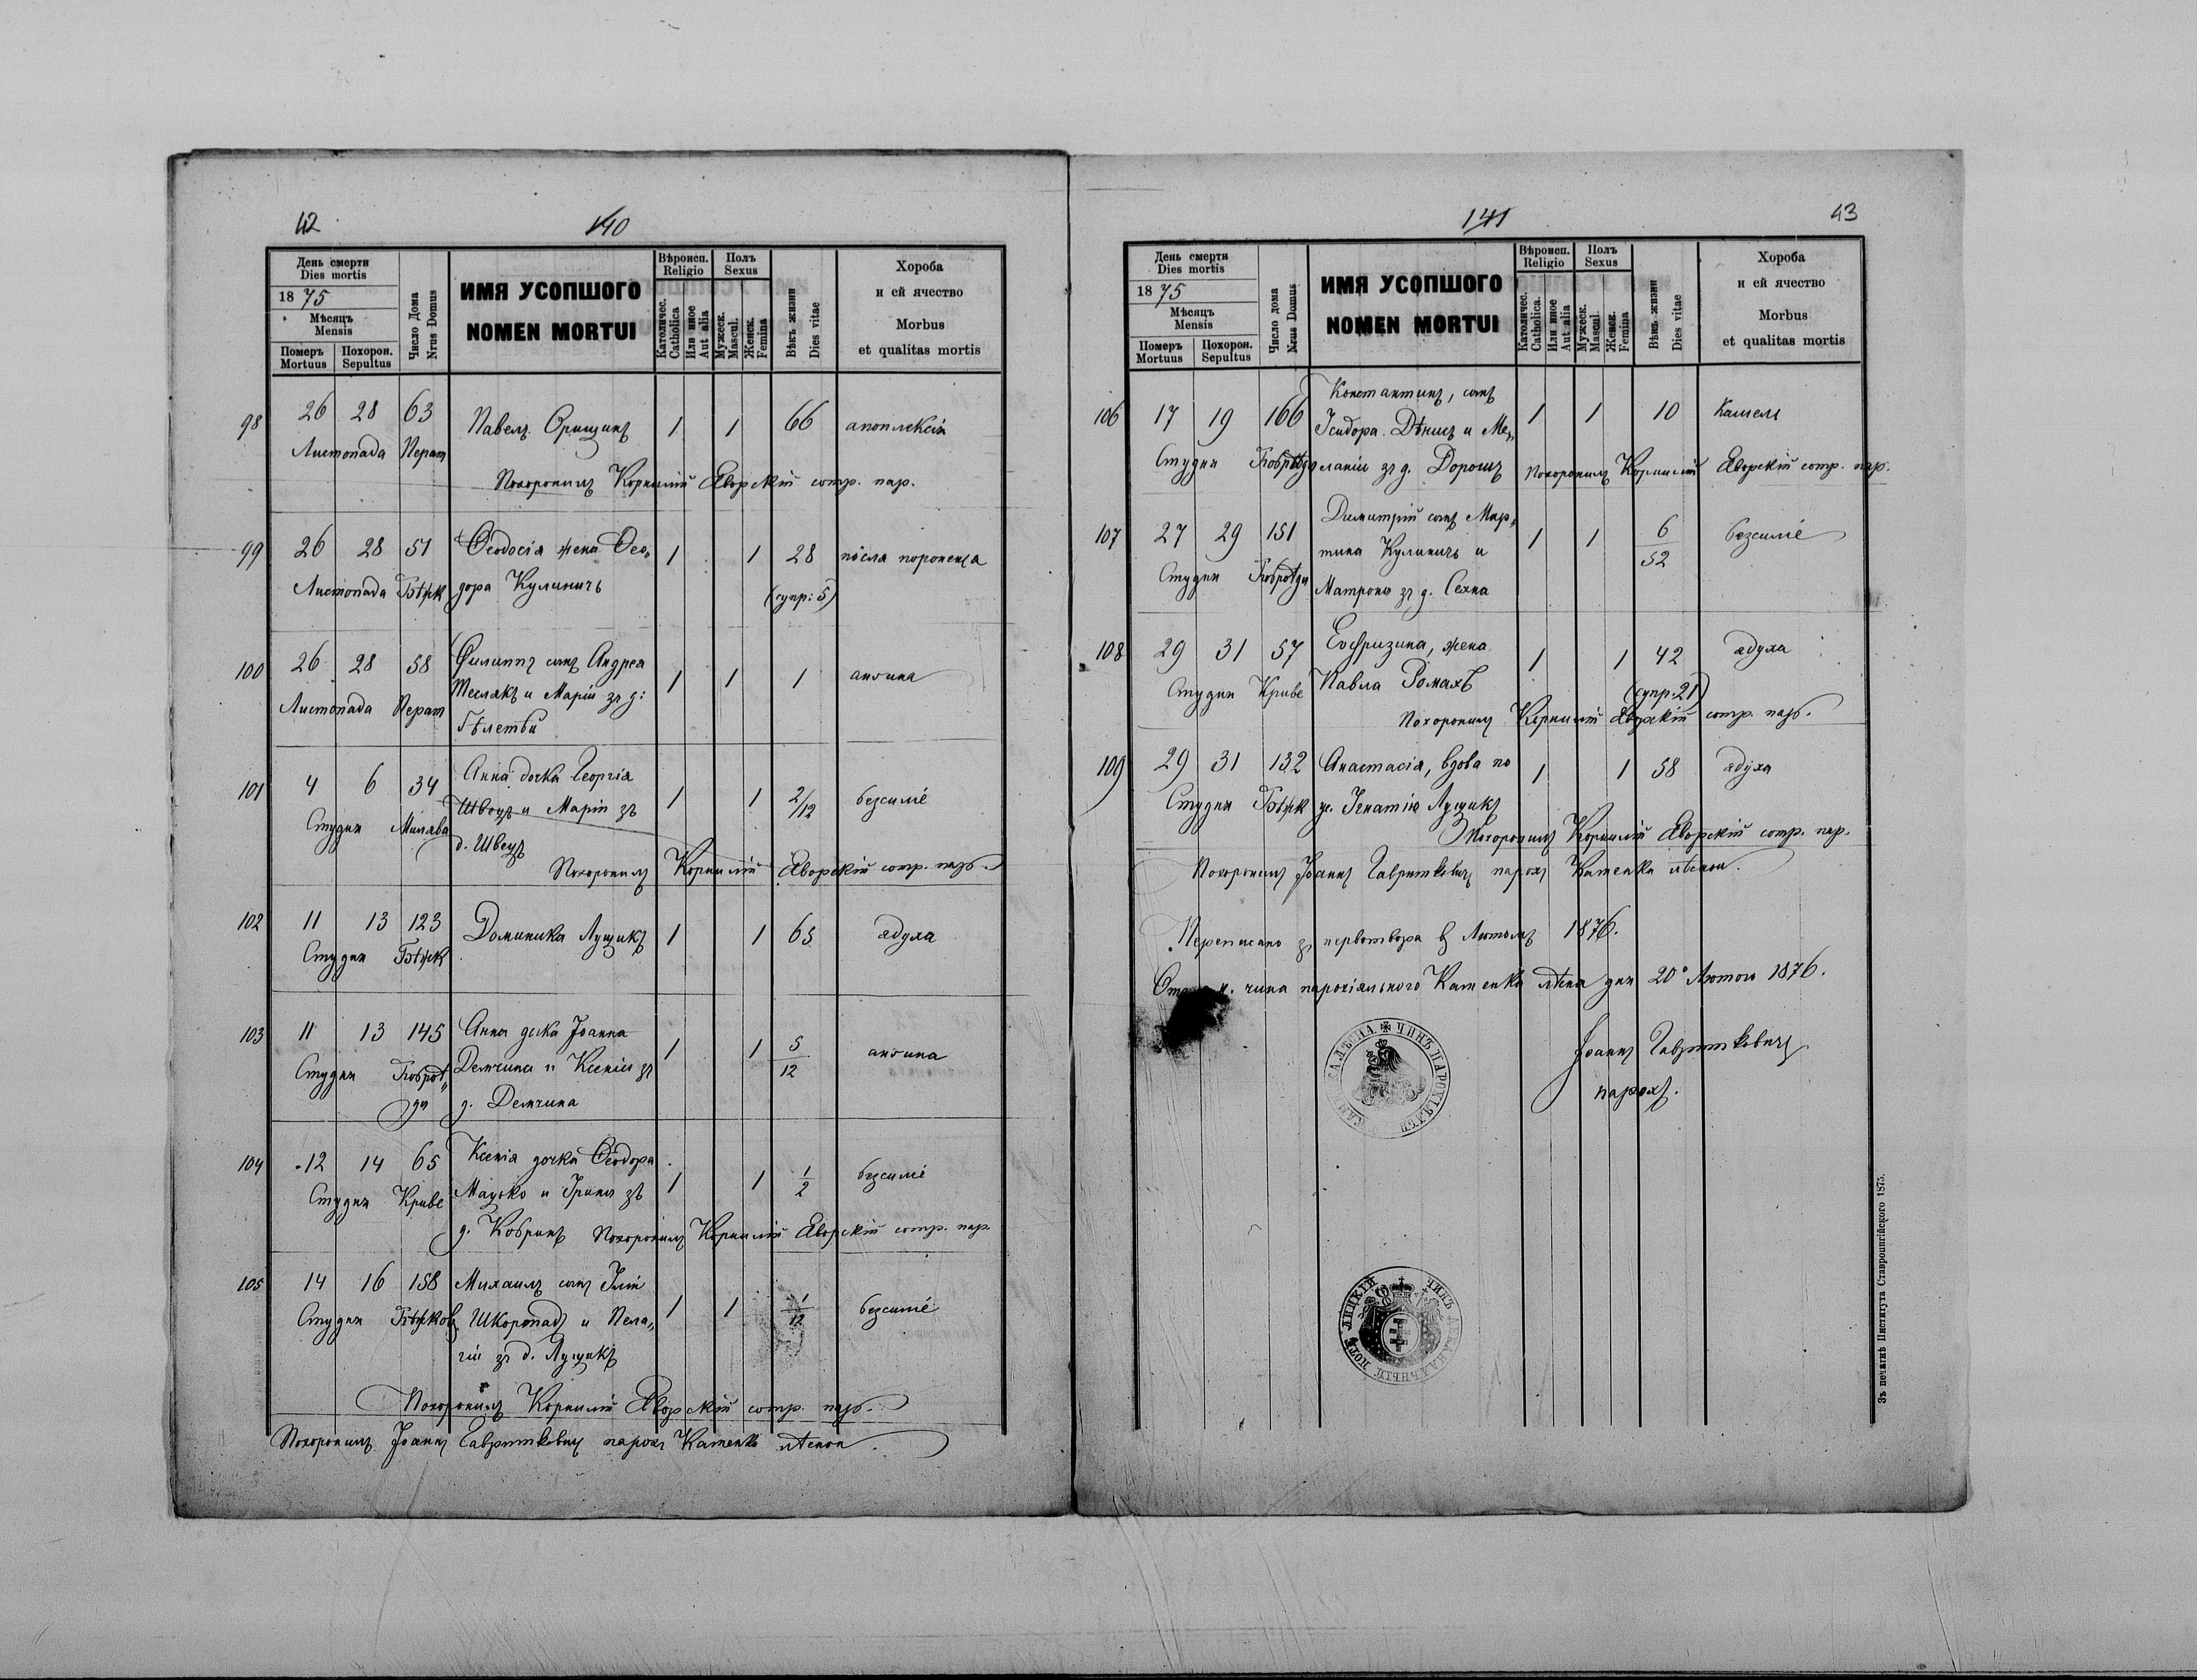 42
140
День смерти
Dies mortis
1875
Мѣсяцъ
Mensis
Померъ
Mortuus
Похорон.
Sepultus
Число Дома
Nrus Domus
ИМЯ УСОПШОГО
NOMEN MORTUI
Вѣроисп.
Religio
Католичес.
Catholica
Или иное
Aut alia
Полъ
Sexus
Мужеск.
Mascul.
Женск.
Femina
Вѣкъ жизни
Dies vitae
Хороба
и ей ячество
Morbus
et qualitas mortis
98 26 28 63 Павелъ Орищинъ 1 1 66 апоплексія
Листопада Перат
Похоронилъ Корнилій Яворскій сотр. пар.
99 26 28 51 Ѳеодосія жена Ѳео„ 1 1 28 посля пороненja
Листопада Бѣжк дора Кулиничь (супр: 5)
100 26 28 58 Филиппъ сынъ Андрея 1 1 1 ангина
Листопада Перат Теслякъ и Маріи зъ д:
101 4 6 34 Анна дочка Георгія 1 1 2/12 безсиліе
Студня Милява Швецъ и Маріи зъ
д. Швецъ
Похоронилъ Корнилій Яворскій сотр. пар.
102 11 13 123 Доминика Лущикъ 1 1 65 ядуха
Студня Бѣжк
103 11 13 145 Анна дочка Іоанна 1 1 5/12 ангина
Студня Поброд„ Демчина и Ксеніи зъ
ди д. Демчина
104 12 14 65 Ксенія дочка Ѳеодора 1 1 1/2 безсиліе
Студня Криве Мацько и Ірины зъ
д. Кобринъ Похоронилъ Корнилій Яворскій сотр. пар.
105 14 16 158 Михаилъ сынъ Іліи 1 1 1/12 безсиліе
Студня Шкоропадъ и Пела„
гіи зъ д. Лущикъ
Похоронилъ Корнилій Яворскій сотр. пар.
Похоронилъ Іоаннъ Гавришкевичъ парохъ Каменки лѣсной.
141
43
День смерти
Dies mortis
1875
Мѣсяцъ
Mensis
Померъ
Mortuus
Похорон.
Sepultus
Число дома
Nrus Domus
ИМЯ УСОПШОГО
NOMEN MORTUI
Вѣроисп.
Religio
Католичес.
Catholica.
Или иное
Aut alia
Полъ
Sexus
Мужеск.
Mascul.
Женск.
Femina
Вѣкъ жизни
Dies vitae
Хороба
и ей ячество
Morbus
et qualitas mortis
Константинъ, сынъ
106 17 19 166 Ісидора Дѣнисъ и Ме„ 1 1 10 Кашель
Студня ланіи зъ д. Дорошъ Похоронилъ Корнилій Яворскій сотр. пар.
Димитрій сынъ Мар„
107 27 29 151 тина Куличь и 1 1 6/52 безсиліе
Студня Матроны зъ д. Сехна
108 29 31 57 Евфризина, жена 1 1 42 ядуха
Студня Криве Павла Ромахъ (супр: 21)
Похоронилъ Корнилій Яворскій сотр. пар.
109 29 31 132 Анастасія, вдова по 1 1 58 ядуха
Студня Бѣжк Игнатію Лущикъ
Похоронилъ Корнилій Яворскій сотр. пар.
Похоронилъ Іоаннъ Гавришкевичъ парохъ Каменки лѣсной.
Переписано зъ первотвора въ Лютомъ 1876.
чина парохіяльного Каменка лѣсна дня 20º Лютого 1876.
Іоаннъ Гавришкевичъ
парохъ.
Зъ печатнѣ Института Ставропигійского 1875.